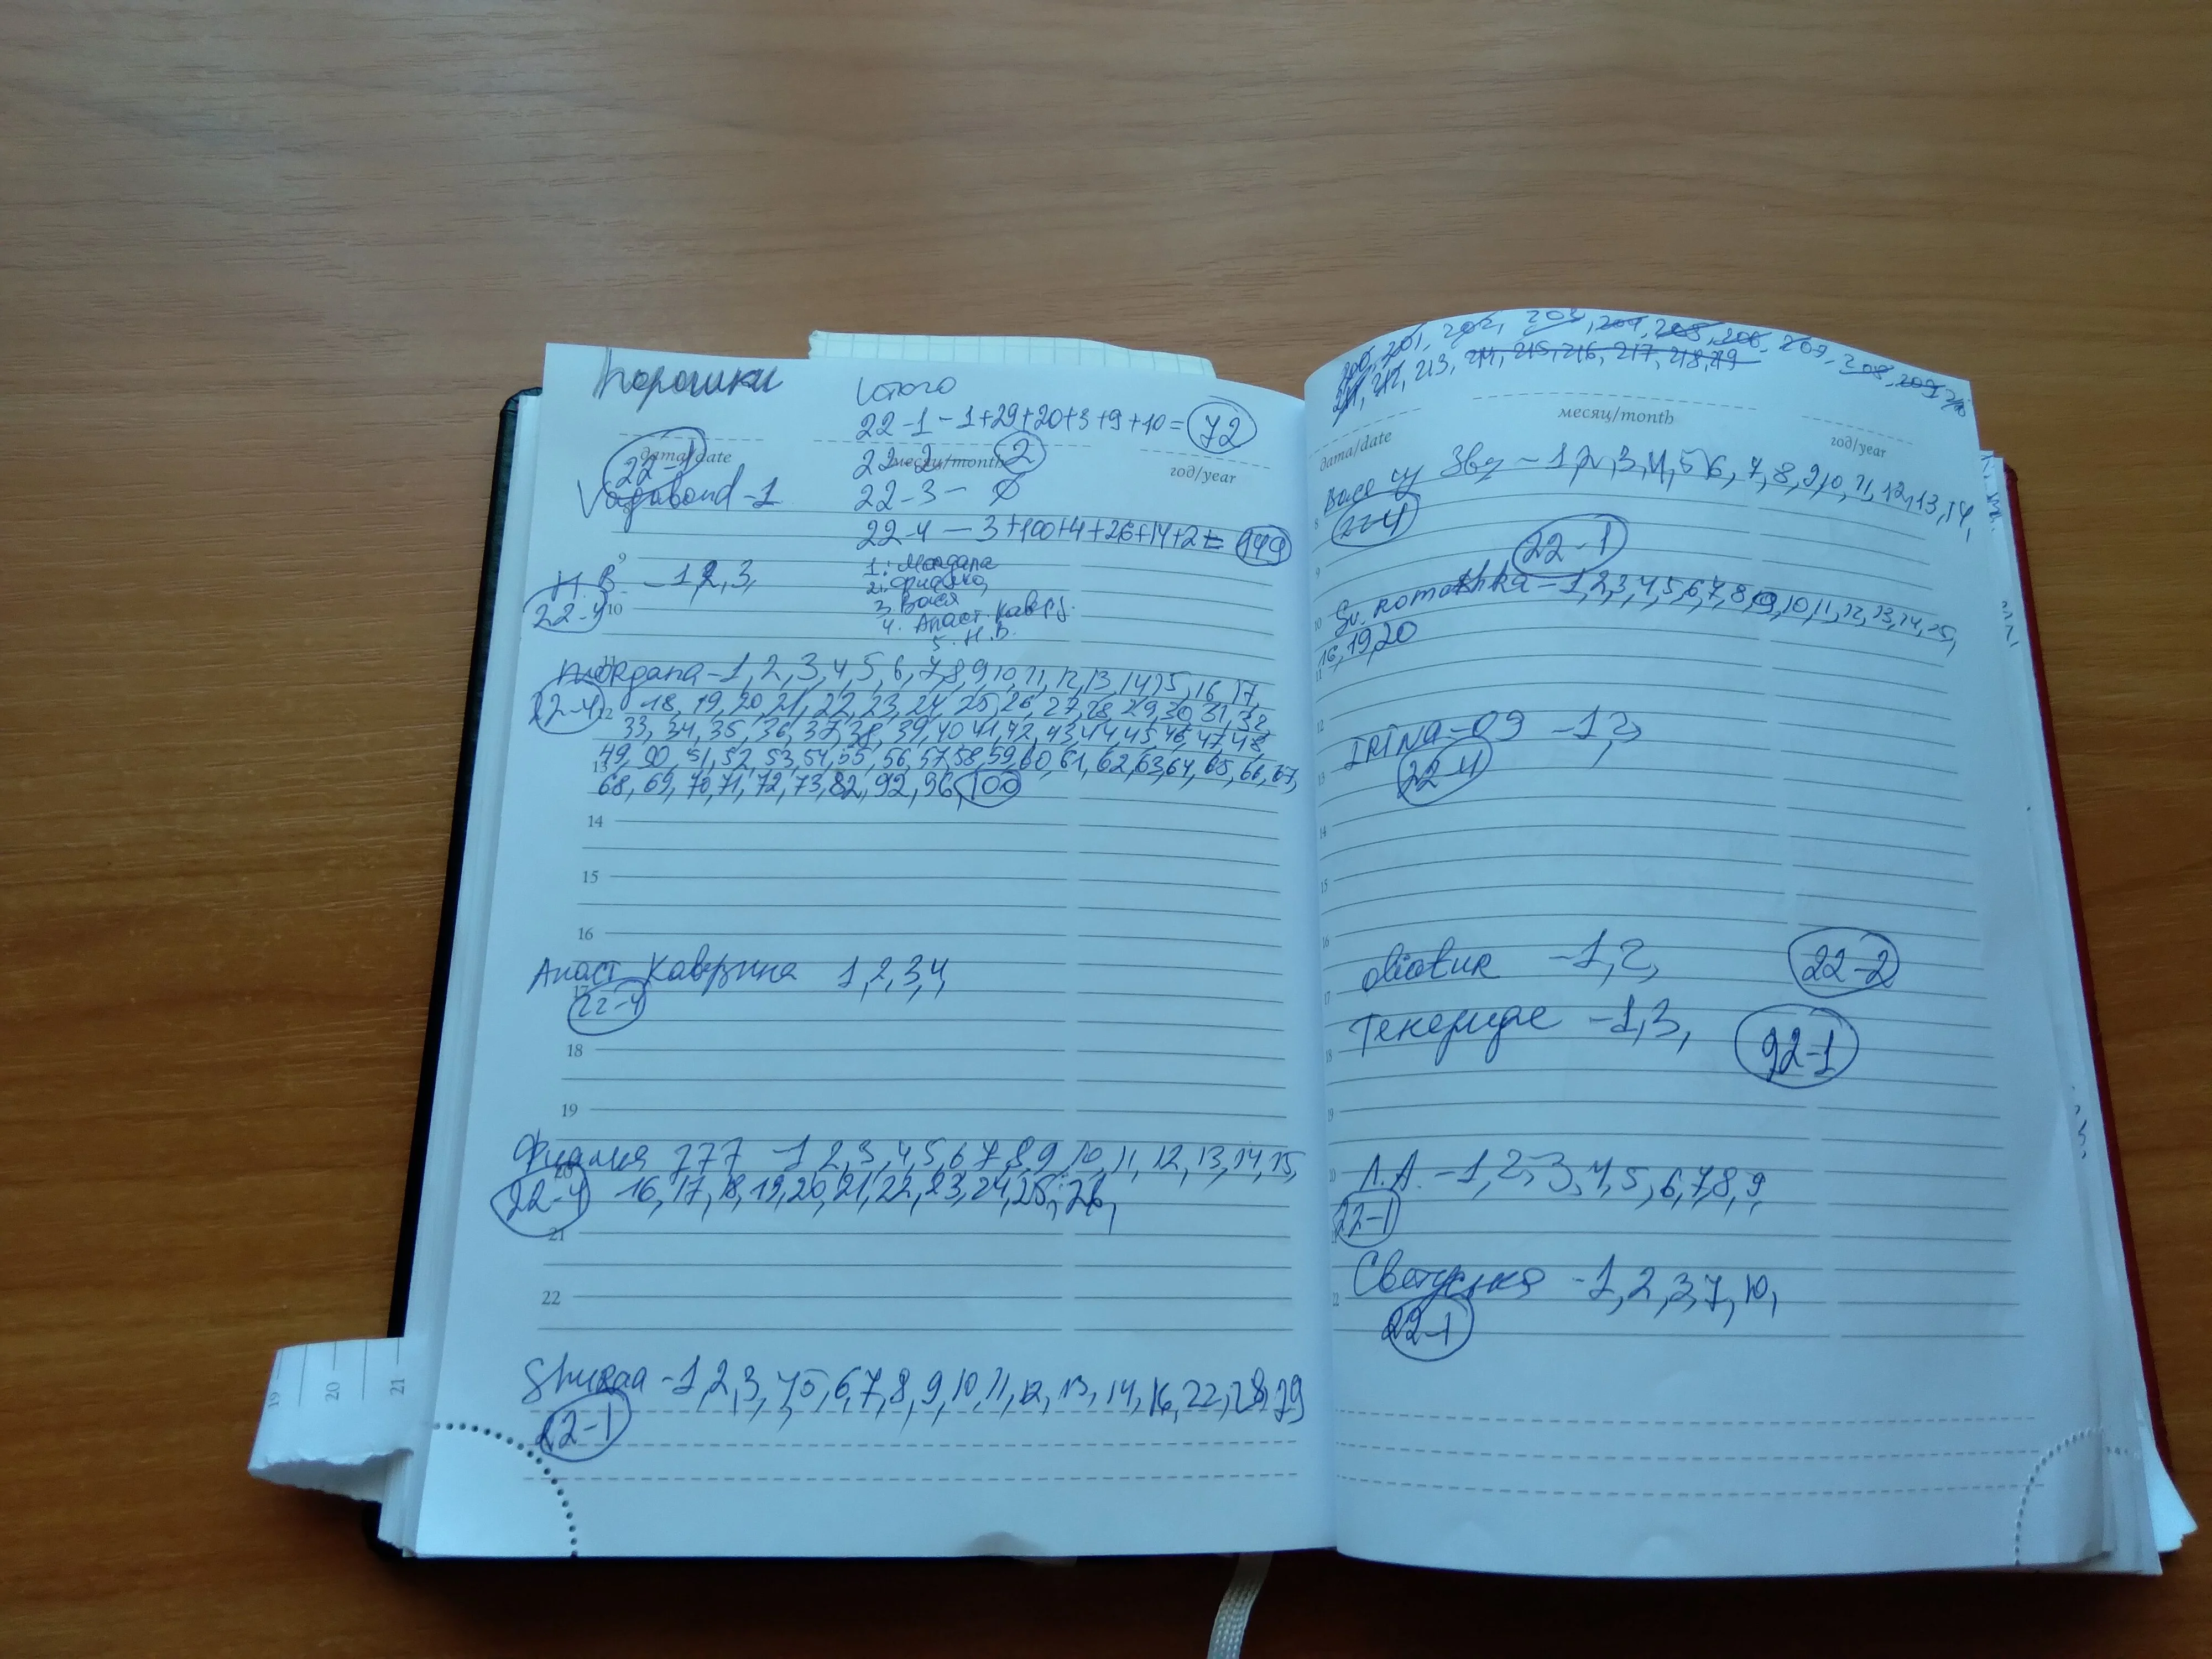 Порошки
Итого
22-1 - 1+29+20+3+9+10=72
дата/date
месяц/month
год/year
22-1
22-2 - 2
Vagabond-1
22-3 - ∅
22-4 - 3+100+4+26+14+2= 149
1. Мордапа
Н.В. -1,2,3,
2. Фиалка,
22-4
3. Вася
4. Анаст. Кавер.
5. Н.В.
Мордапа-1,2,3,4,5,6,7,8,9,10,11,12,13,14,15,16,17,
22-4
18,19,20,21,22,23,24,25,26,27,28,29,30,31,32,
33,34,35,36,37,38,39,40,41,42,43,44,45,46,47,48,
49,50,51,52,53,54,55,56,57,58,59,60,61,62,63,64,65,66,67,
68,69,70,71,72,73,82,92,96,100
14
15
16
Анаст Каверина 1,2,3,4,
22-4
18
19
Фиалка 777 -1 2,3,4,5,6 7,8,9,10,11,12,13,14,15,
22-4 16,17,18,19,20,21,22,23,24,25,26,
21
22
Shuraa -1,2,3,4,5,6,7,8,9,10,11,12,13,14,16,22,28,29
22-1
19 20 21
200, 201, 202, 203, 204, 205, 206, 207, 208, 209, 210
211, 212, 213, 214, 215, 216, 217, 218, 219
дата/date
месяц/month
год/year
Звз -1,2,3,4,5,6,7,8,9,10,11,12,13,14,
22-4
22-1
Sv. Romashka -1,2,3,4,5,6,7,8,9,10,11,12,13,14,15,
16,19,20
IRINA-09 -1,2,
22-4
-1,2,
22-2
Текериде -1,3,
92-1
Л.А. -1,2,3,4,5,6,7,8,9,
22-1
Светуська -1,2,3,7,10,
22-1